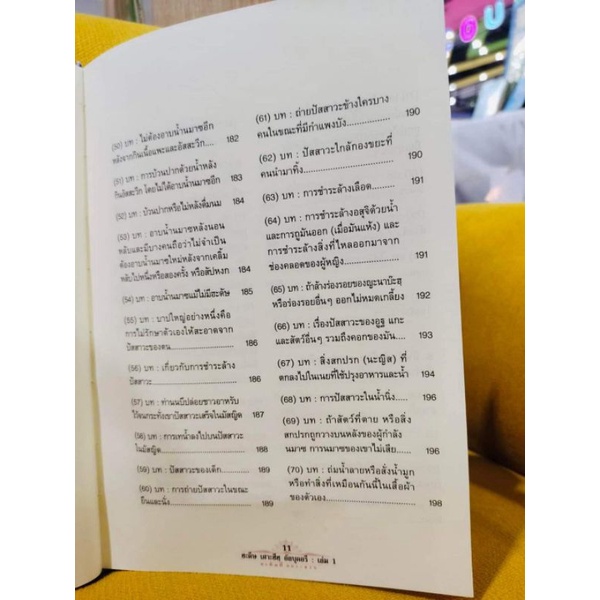 (50) บท : ไม่ต้องอาบน้ำนมาซอีก
หลังจากกินเนื้อแพะและอัสสะวีก.... 182
(51) บท : การบ้วนปากด้วยน้ำหลัง
กินอัสสะวีก โดยไม่ได้อาบน้ำนมาซอีก 183
(52) บท : บ้วนปากหรือไม่หลังดื่มนม 184
(53) บท : อาบน้ำนมาซหลังนอน
หลับและมีบางคนถือว่าไม่จำเป็น
ต้องอาบน้ำนมาซใหม่หลังจากเคลิ้ม
หลับไปหนึ่งหรือสองครั้ง หรือสัปหงก 184
(54) บท : อาบน้ำนมาซแม้ไม่มีฮะดัษ 185
(55) บท : บาปใหญ่อย่างหนึ่งคือ
การไม่รักษาตัวเองให้สะอาดจาก
ปัสสาวะของตน................................ 186
(56) บท : เกี่ยวกับการชำระล้าง
ปัสสาวะ.......................................... 186
(57) บท : ท่านนบีปล่อยชาวอาหรับ
ไว้จนกระทั่งเขาปัสสาวะเสร็จในมัสญิด 187
(58) บท : การเทน้ำลงไปบนปัสสาวะ
ในมัสญิด......................................... 188
(59) บท : ปัสสาวะของเด็ก............. 189
(60) บท : การถ่ายปัสสาวะในขณะ
ยืนและนั่ง....................................... 189
(61) บท : ถ่ายปัสสาวะข้างใครบาง
คนในขณะที่มีกำแพงบัง.................. 190
(62) บท : ปัสสาวะใกล้กองขยะที่
คนนำมาทิ้ง..................................... 190
(63) บท : การชำระล้างเลือด.......... 191
(64) บท : การชำระล้างอสุจิด้วยน้ำ
และการถูมันออก (เมื่อมันแห้ง) และ
การชำระล้างสิ่งที่ไหลออกมาจาก
ช่องคลอดของผู้หญิง....................... 191
(65) บท : ถ้าล้างร่องรอยของญะนาบ๊ะฮฺ
หรือร่องรอยอื่นๆ ออกไม่หมดเกลี้ยง 192
(66) บท : เรื่องปัสสาวะของอูฐ แกะ
และสัตว์อื่นๆ รวมถึงคอกของมัน..... 193
(67) บท : สิ่งสกปรก (นะญิส) ที่
ตกลงไปในเนยที่ใช้ปรุงอาหารและน้ำ 194
(68) บท : การปัสสาวะในน้ำนิ่ง...... 196
(69) บท : ถ้าสัตว์ที่ตาย หรือสิ่ง
สกปรกถูกวางบนหลังของผู้กำลัง
นมาซ การนมาซของเขาไม่เสีย......... 196
(70) บท : ถ่มน้ำลายหรือสั่งน้ำมูก
หรือทำสิ่งที่เหมือนกันนี้ในเสื้อผ้า
ของตัวเอง....................................... 198
11
ฮะดีษ เศาะฮีฮฺ อัลบุคอรี : เล่ม 1